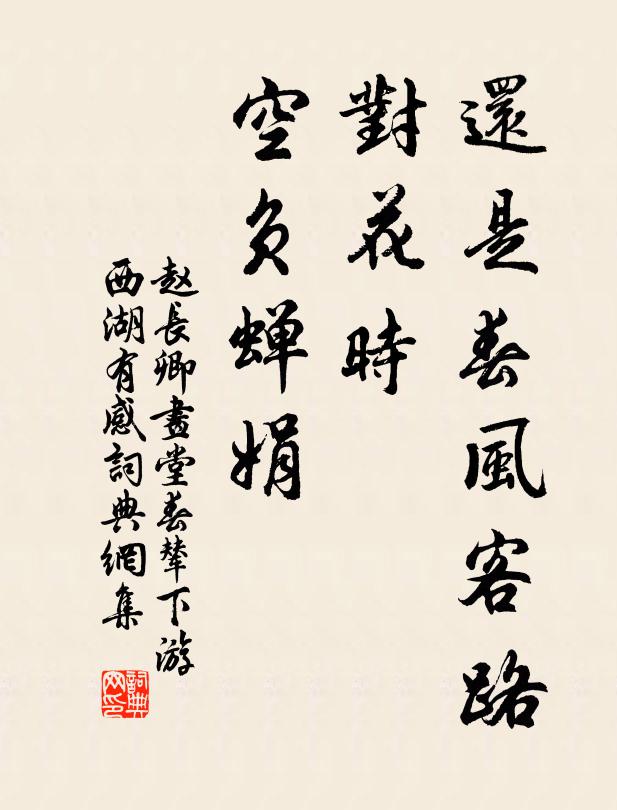 還是春風客路
對花時
空负蝉娟
赵長卿畫堂春輦下游
西湖有感詞典網集
詞典
网印